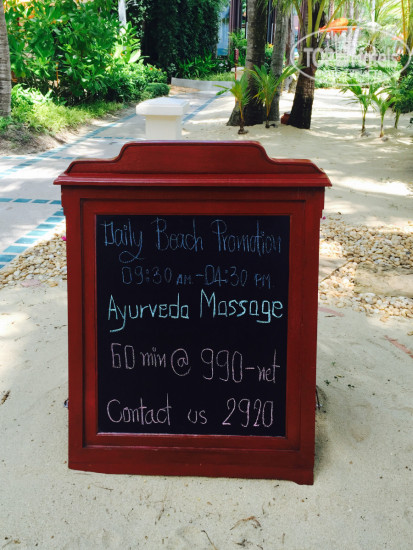 Daily Beach Promotion
09:30 AM - 04:30 PM
Ayurveda Massage
60 min @ 990-net
Contact us 2920